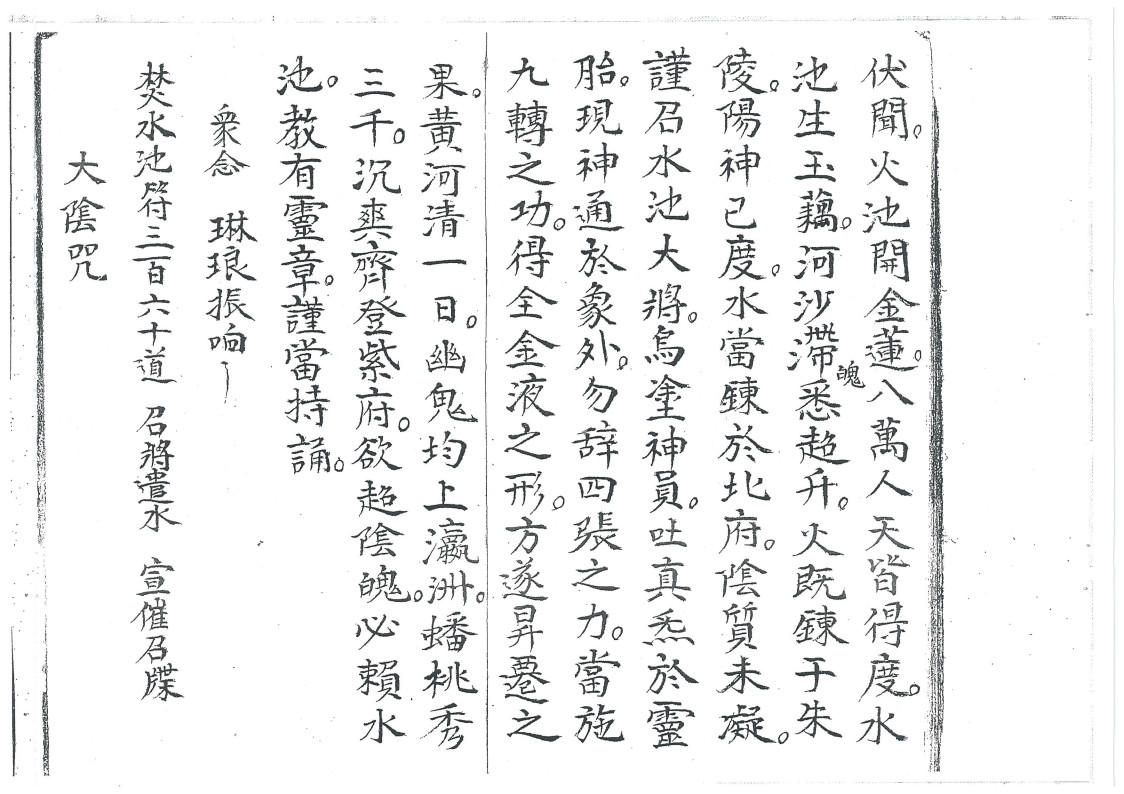 伏聞。火池開金蓮。八萬人天皆得度。水
池生玉藕。河沙滯魄悉超升。火既鍊于朱
陵。陽神已度。水當鍊於北府。陰質未凝。
謹召水池大將。烏塗神員。吐真炁於靈
胎。現神通於象外。勿辞四張之力。當施
九轉之功。得全金液之形。方遂昇遷之
果。黃河清一日。幽鬼均上瀛洲。蟠桃秀
三千。沉爽齊登紫府。欲超陰魄。必賴水
池。教有靈章。謹當持誦。
衆念　琳琅振响
焚水池符三百六十道　召將遣水　宣催召牒
大陰咒